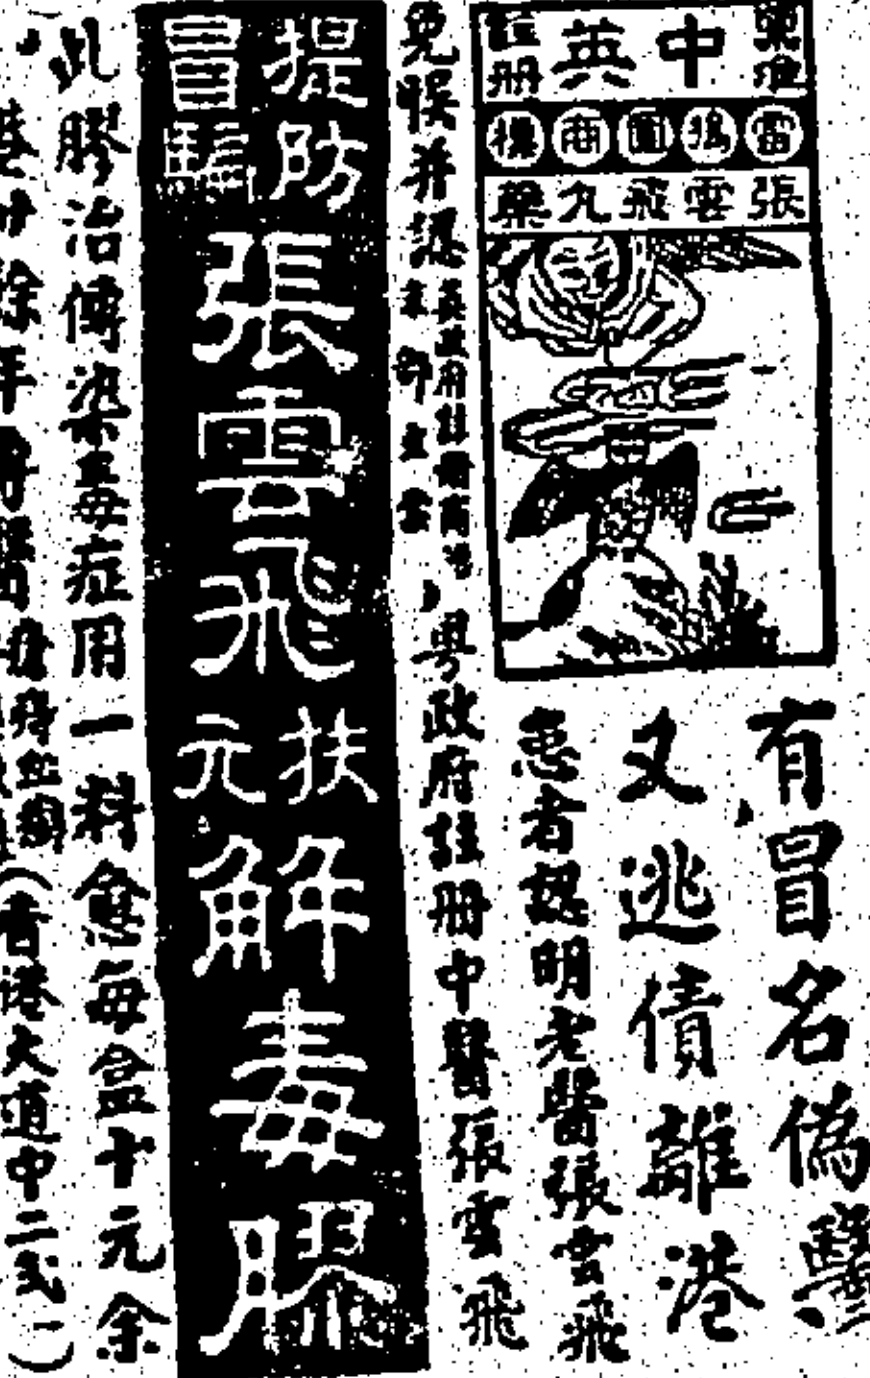 中英
註册
雷鳴圖商標
張雲飛九藥
有冒名偽醫
又逃債離港
患者認明老醫張雲飛
免誤并認
英政府註册商標
粵政府註册中醫張雲飛
提防
冒騙
張雲飛
扶元
解毒膠
此膠治傳染毒症用一料愈每盒十元余
港廿餘年
(香港大道中二弍一)